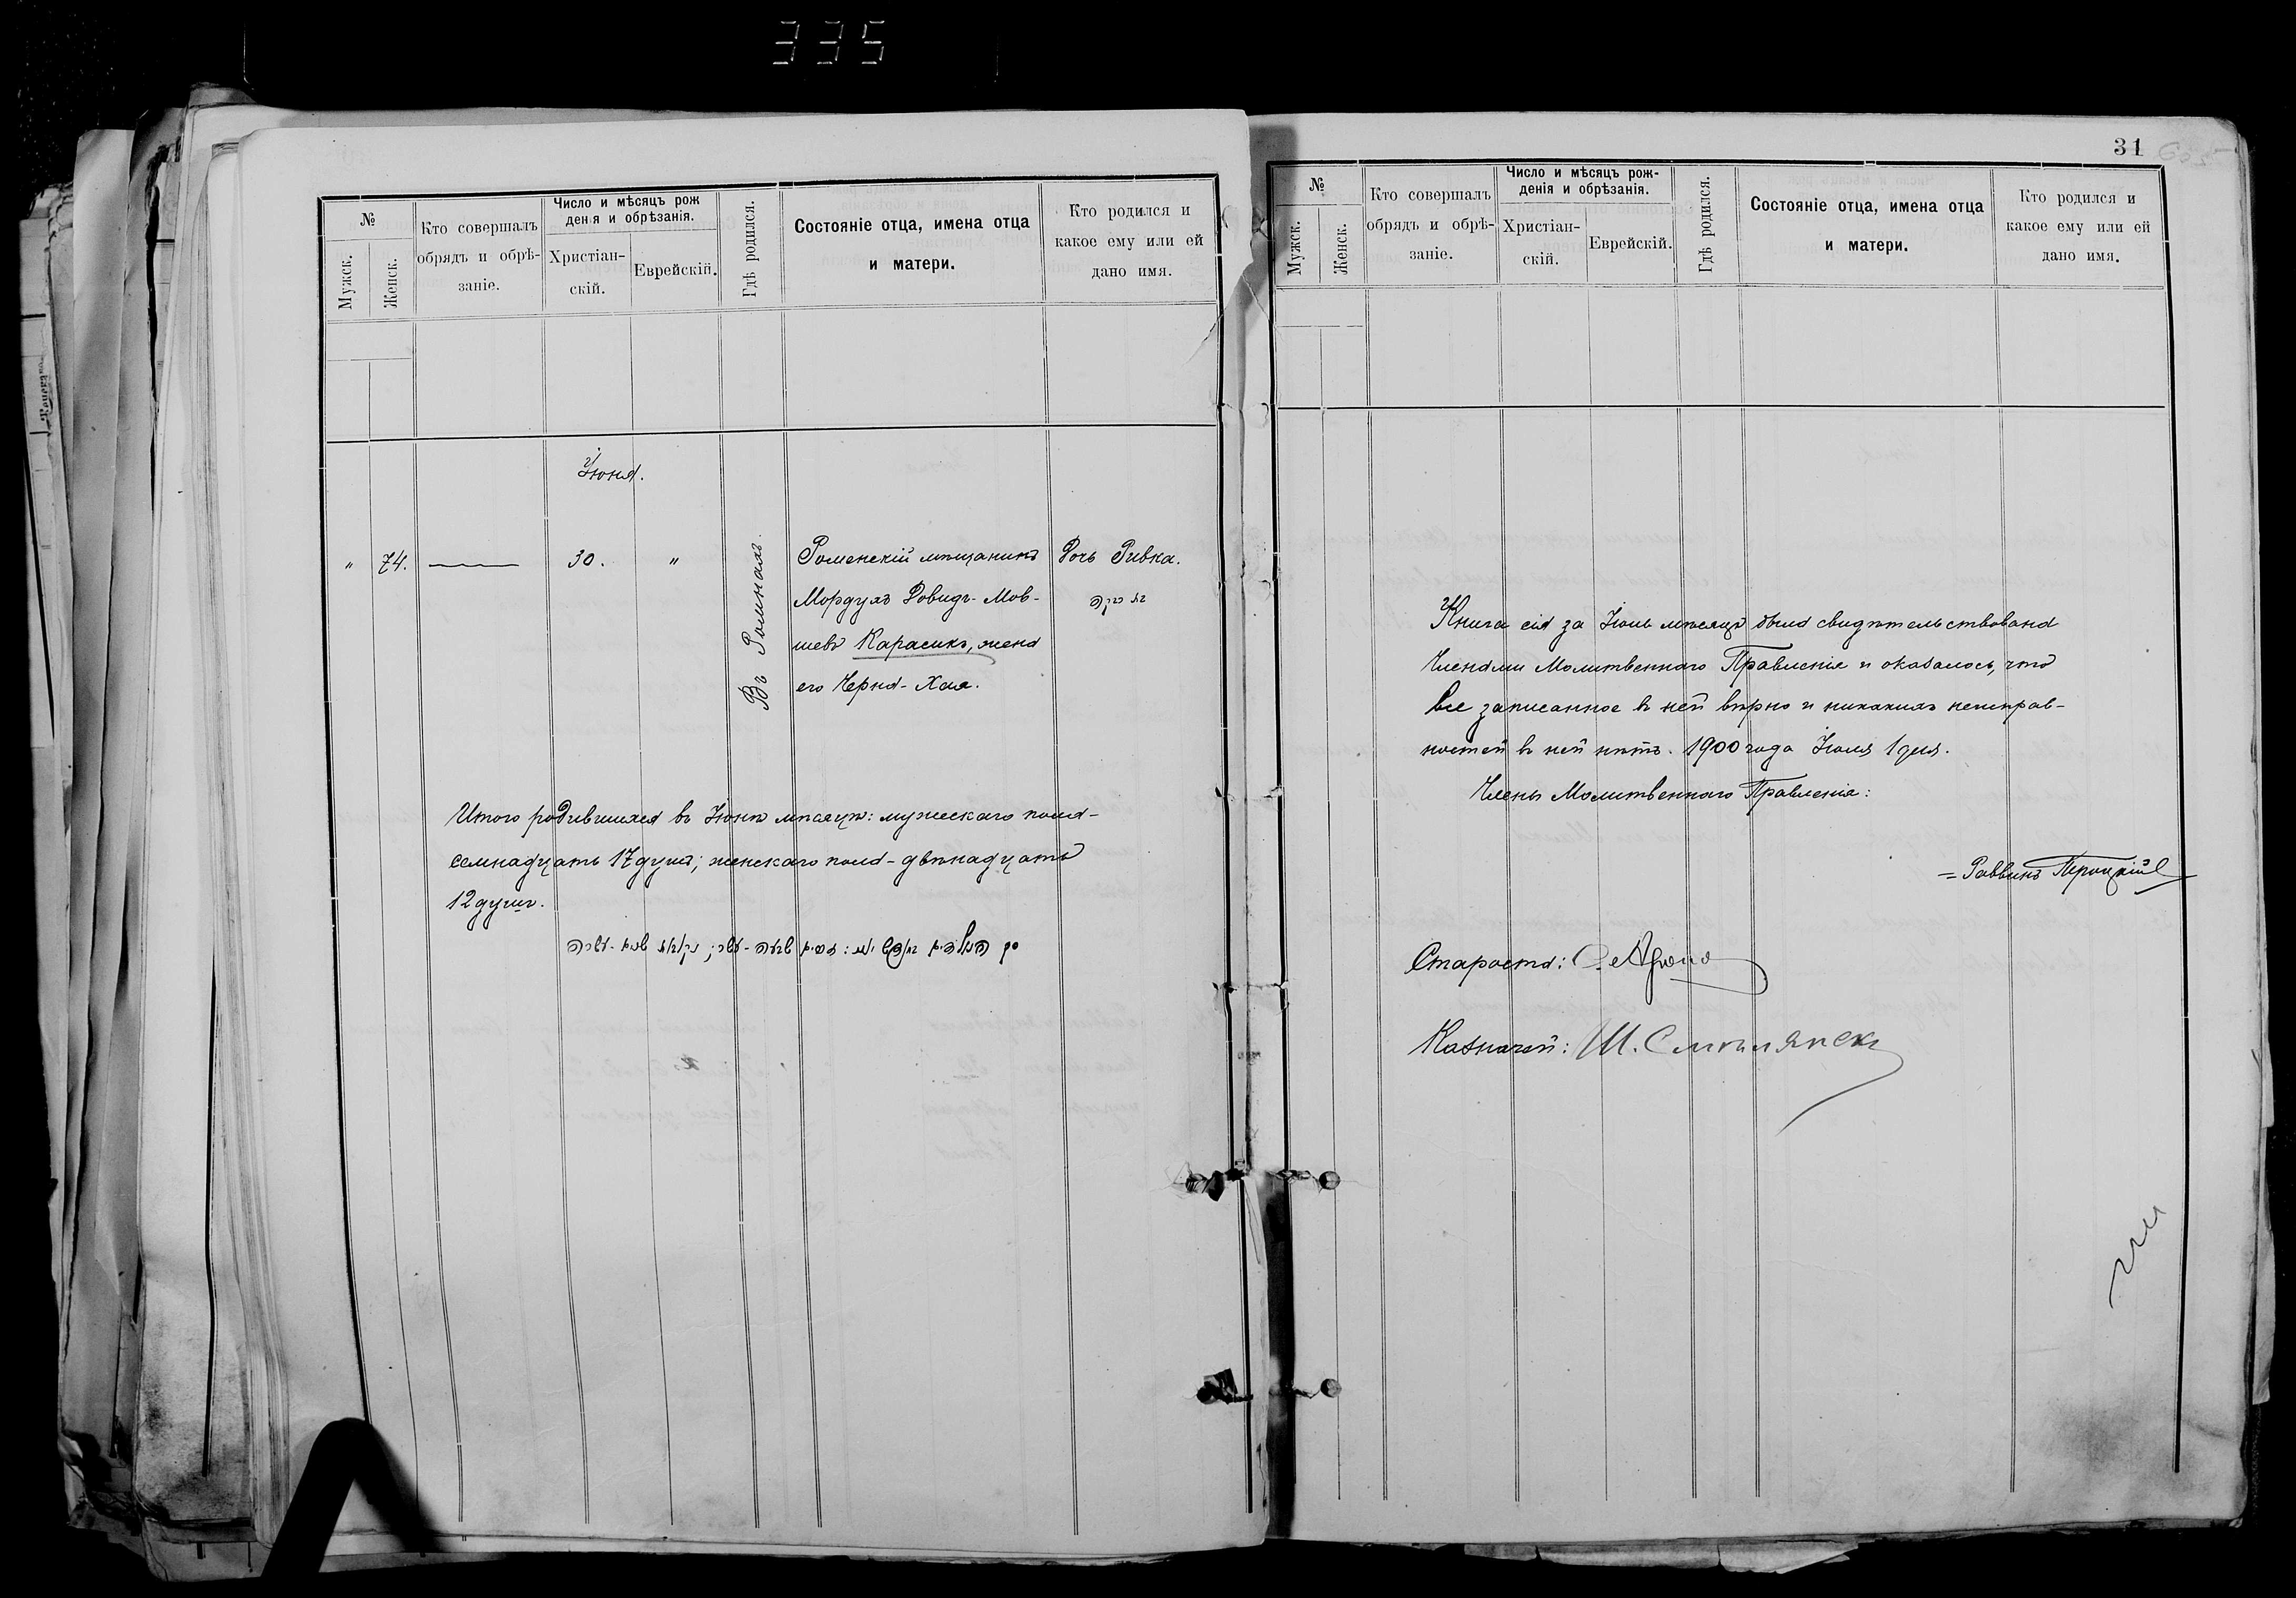 335
№
Мужск.
Женск.
Кто совершалъ
обрядъ и обрѣ-
заніе.
Число и мѣсяцъ рож
денія и обрѣзанія.
Христіан-
скій.
Еврейскій.
Гдѣ родился.
Состояніе отца, имена отца
и матери.
Кто родился и
какое ему или ей
дано имя.
Іюня.
" 74. 30. "
Въ Ромнахъ.
Роменскій мѣщанинъ
Мордухъ Довидъ-Мов-
шевъ Карасикъ, жена
его Черна-Хая.
Дочь Ривка.
Итого родившихся въ Іюнѣ мѣсяцѣ: мужескаго пола-
семнадцать 17 душъ; женскаго пола-двѣнадцать
12 душъ.
31
№
Мужск.
Женск.
Кто совершалъ
обрядъ и обрѣ-
заніе.
Число и мѣсяцъ рож-
денія и обрѣзанія.
Христіан-
скій.
Еврейскій.
Гдѣ родился.
Состояніе отца, имена отца
и матери.
Кто родился и
какое ему или ей
дано имя.
Книга сія за Іюнь мѣсяцъ была свидѣтельствована
Членами Молитвеннаго Правленіе и оказалось, что
все записанное въ ней вѣрно и никакихъ неисправ-
ностей въ ней нѣтъ. 1900 года Іюля 1 дня.
Члены Молитвеннаго Правленія:
= Раввинъ
Староста:
Казначей: Ш.